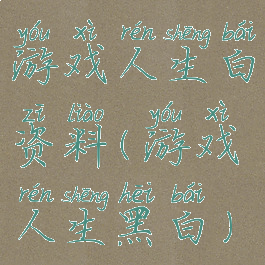 yóu xì rén shēng bái
游戏人生白
zī liào ( yóu xì
资料(游戏
rén shēng hēi bái
人生黑白)